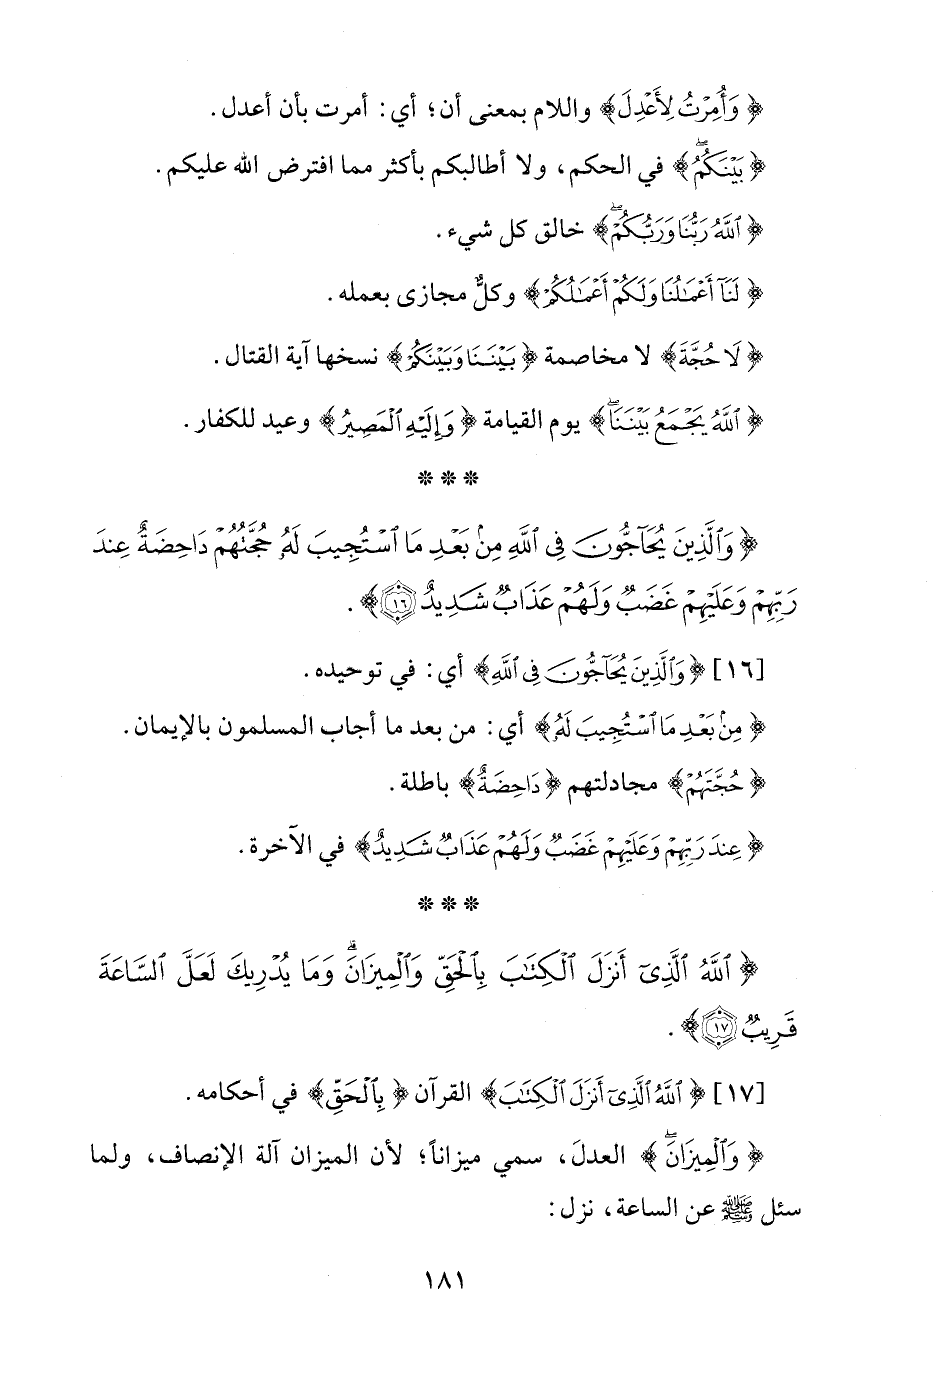 ﴿وَأُمِرْتُ لِأَعْدِلَ﴾ واللام بمعنى أن؛ أي: أمرت بأن أعدل.
﴿بَيْنَكُمُۖ﴾ في الحكم، ولا أطالبكم بأكثر مما افترض الله عليكم.
﴿ٱللَّهُ رَبُّنَا وَرَبُّكُمْۖ﴾ خالق كل شيء.
﴿لَنَآ أَعْمَٰلُنَا وَلَكُمْ أَعْمَٰلُكُمْ﴾ وكلٌّ مجازى بعمله.
﴿لَا حُجَّةَ﴾ لا مخاصمة ﴿بَيْنَنَا وَبَيْنَكُمُ﴾ نسخها آية القتال.
﴿ٱللَّهُ يَجْمَعُ بَيْنَنَاۖ﴾ يوم القيامة ﴿وَإِلَيْهِ ٱلْمَصِيرُ﴾ وعيد للكفار.
***
﴿وَٱلَّذِينَ يُحَآجُّونَ فِى ٱللَّهِ مِنۢ بَعْدِ مَا ٱسْتُجِيبَ لَهُۥ حُجَّتُهُمْ دَاحِضَةٌ عِندَ
رَبِّهِمْ وَعَلَيْهِمْ غَضَبٌ وَلَهُمْ عَذَابٌ شَدِيدٌ ١٦﴾.
[١٦] ﴿وَٱلَّذِينَ يُحَآجُّونَ فِى ٱللَّهِ﴾ أي: في توحيده.
﴿مِنۢ بَعْدِ مَا ٱسْتُجِيبَ لَهُۥ﴾ أي: من بعد ما أجاب المسلمون بالإيمان.
﴿حُجَّتُهُمْ﴾ مجادلتهم ﴿دَاحِضَةٌ﴾ باطلة.
﴿عِندَ رَبِّهِمْ وَعَلَيْهِمْ غَضَبٌ وَلَهُمْ عَذَابٌ شَدِيدٌ﴾ في الآخرة.
***
﴿ٱللَّهُ ٱلَّذِىٓ أَنزَلَ ٱلْكِتَٰبَ بِٱلْحَقِّ وَٱلْمِيزَانَۗ وَمَا يُدْرِيكَ لَعَلَّ ٱلسَّاعَةَ
قَرِيبٌ ١٧﴾.
[١٧] ﴿ٱللَّهُ ٱلَّذِىٓ أَنزَلَ ٱلْكِتَٰبَ﴾ القرآن ﴿بِٱلْحَقِّ﴾ في أحكامه.
﴿وَٱلْمِيزَانَۗ﴾ العدلَ، سمي ميزاناً؛ لأن الميزان آلة الإنصاف، ولما
سئل ﷺ عن الساعة، نزل:
١٨١